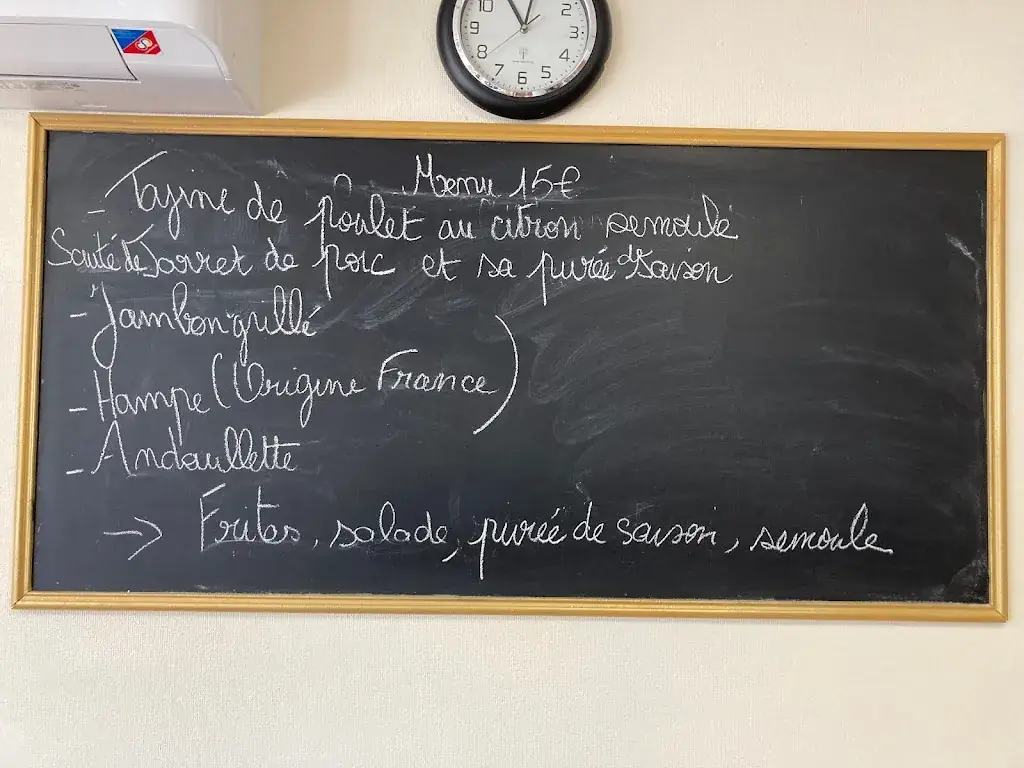 10 2
9 3
8 4
7 6 5
Menu 15€
- Tajine de poulet au citron semoule
Sauté de Jarret de porc et sa purée d saison
- Jambon grillé
- Hampe (Origine France)
- Andouillette
→ Frites, salade, purée de saison, semoule